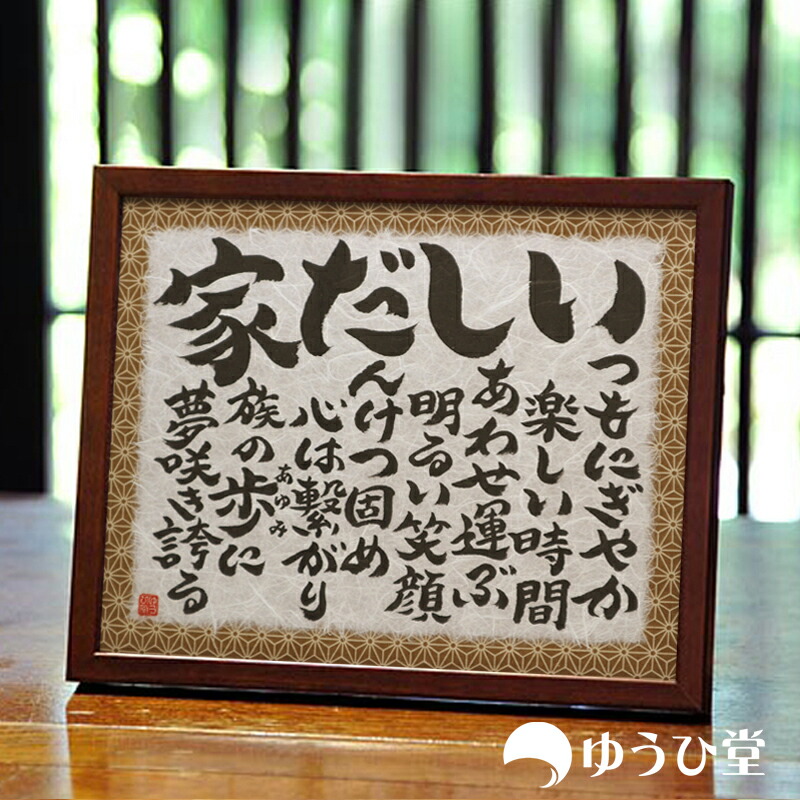 いつもにぎやか
楽しい時間
しあわせ運ぶ
明るい笑顔
だんけつ固め
心は繋がり
家族の歩に
あゆみ
夢咲き誇る
ゆうひ堂